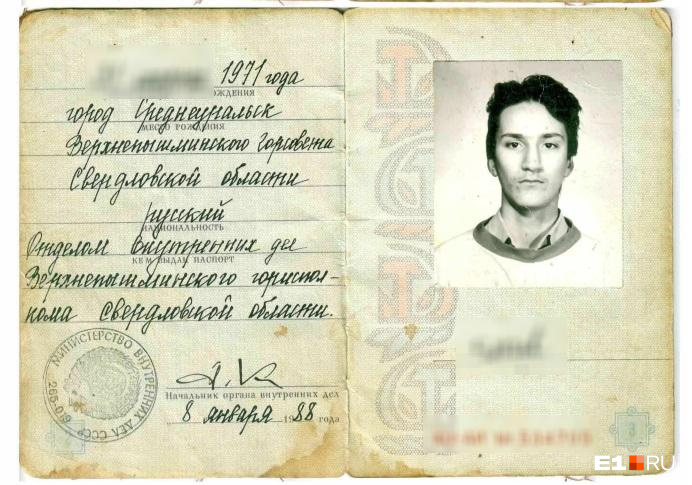 1971 года
РОЖДЕНИЯ
город Среднеуральск
МЕСТО РОЖДЕНИЯ
Верхнепышминского Горсовета
Свердловской области
русский
НАЦИОНАЛЬНОСТЬ
Отделом внутренних дел
КЕМ ВЫДАН ПАСПОРТ
Верхнепышминского гориспол-
кома Свердловской области.
МИНИСТЕРСТВО ВНУТРЕННИХ ДЕЛ СССР
Начальник органа внутренних дел
8 января 1988 года
3
E1.RU